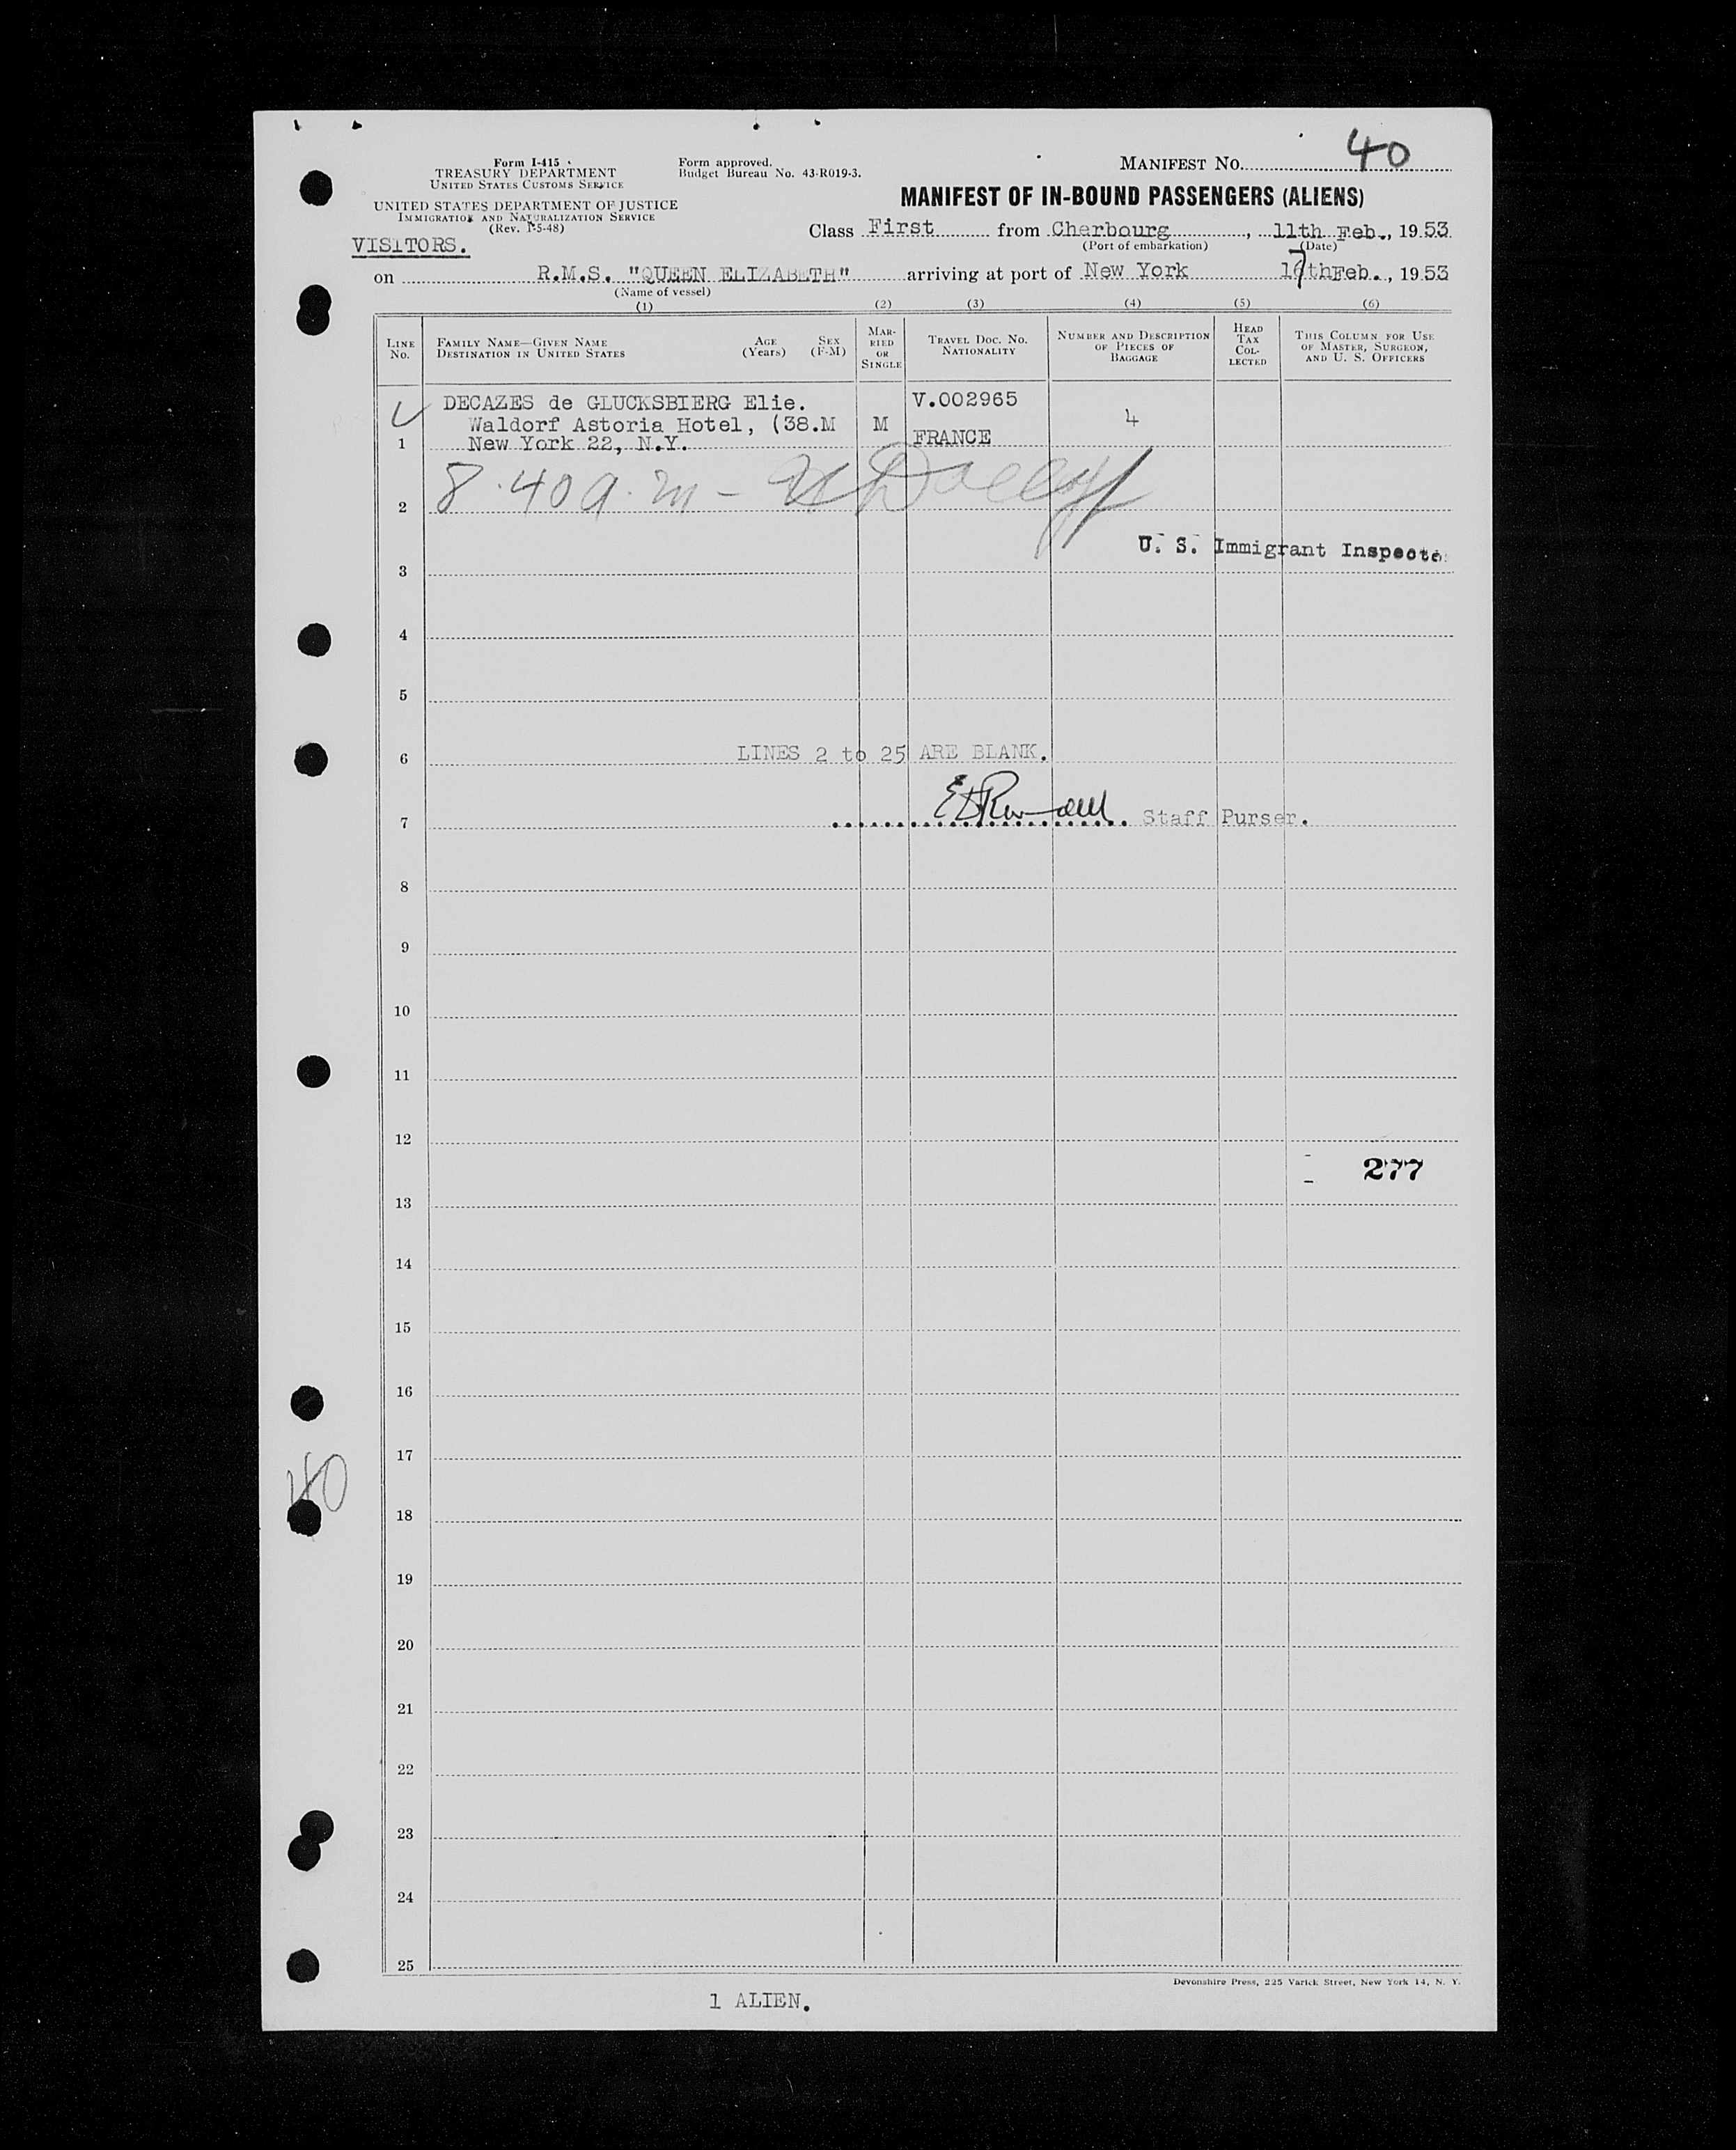 Form I-415
TREASURY DEPARTMENT
UNITED STATES CUSTOMS SERVICE
UNITED STATES DEPARTMENT OF JUSTICE
IMMIGRATION AND NATURALIZATION SERVICE
(Rev. 1-5-48)
VISITORS.
Form approved.
Budget Bureau No. 43-R019-3.
MANIFEST NO. 40
MANIFEST OF IN-BOUND PASSENGERS (ALIENS)
Class First from Cherbourg, 11th Feb., 1953
(Port of embarkation) (Date)
on R.M.S. "QUEEN ELIZABETH" arriving at port of New York 17th Feb., 1953
(Name of vessel)
(1) (2) (3) (4) (5) (6)
LINE NO.
FAMILY NAME—GIVEN NAME
DESTINATION IN UNITED STATES
AGE (Years)
SEX (F-M)
MARRIED OR SINGLE
TRAVEL DOC. NO. NATIONALITY
NUMBER AND DESCRIPTION OF PIECES OF BAGGAGE
HEAD TAX COLLECTED
THIS COLUMN FOR USE OF MASTER, SURGEON, AND U. S. OFFICERS
DECAZES de GLUCKSBIERG Elie. V.002965
Waldorf Astoria Hotel, (38.M M 4
1 New York 22, N.Y. FRANCE
2 8.40 a.m -
U. S. Immigrant Inspecto
3
4
5
6 LINES 2 to 25 ARE BLANK.
7 Staff Purser.
8
9
10
11
12
277
13
14
15
16
17
40
18
19
20
21
22
23
24
25
Devonshire Press, 225 Varick Street, New York 14, N. Y.
1 ALIEN.